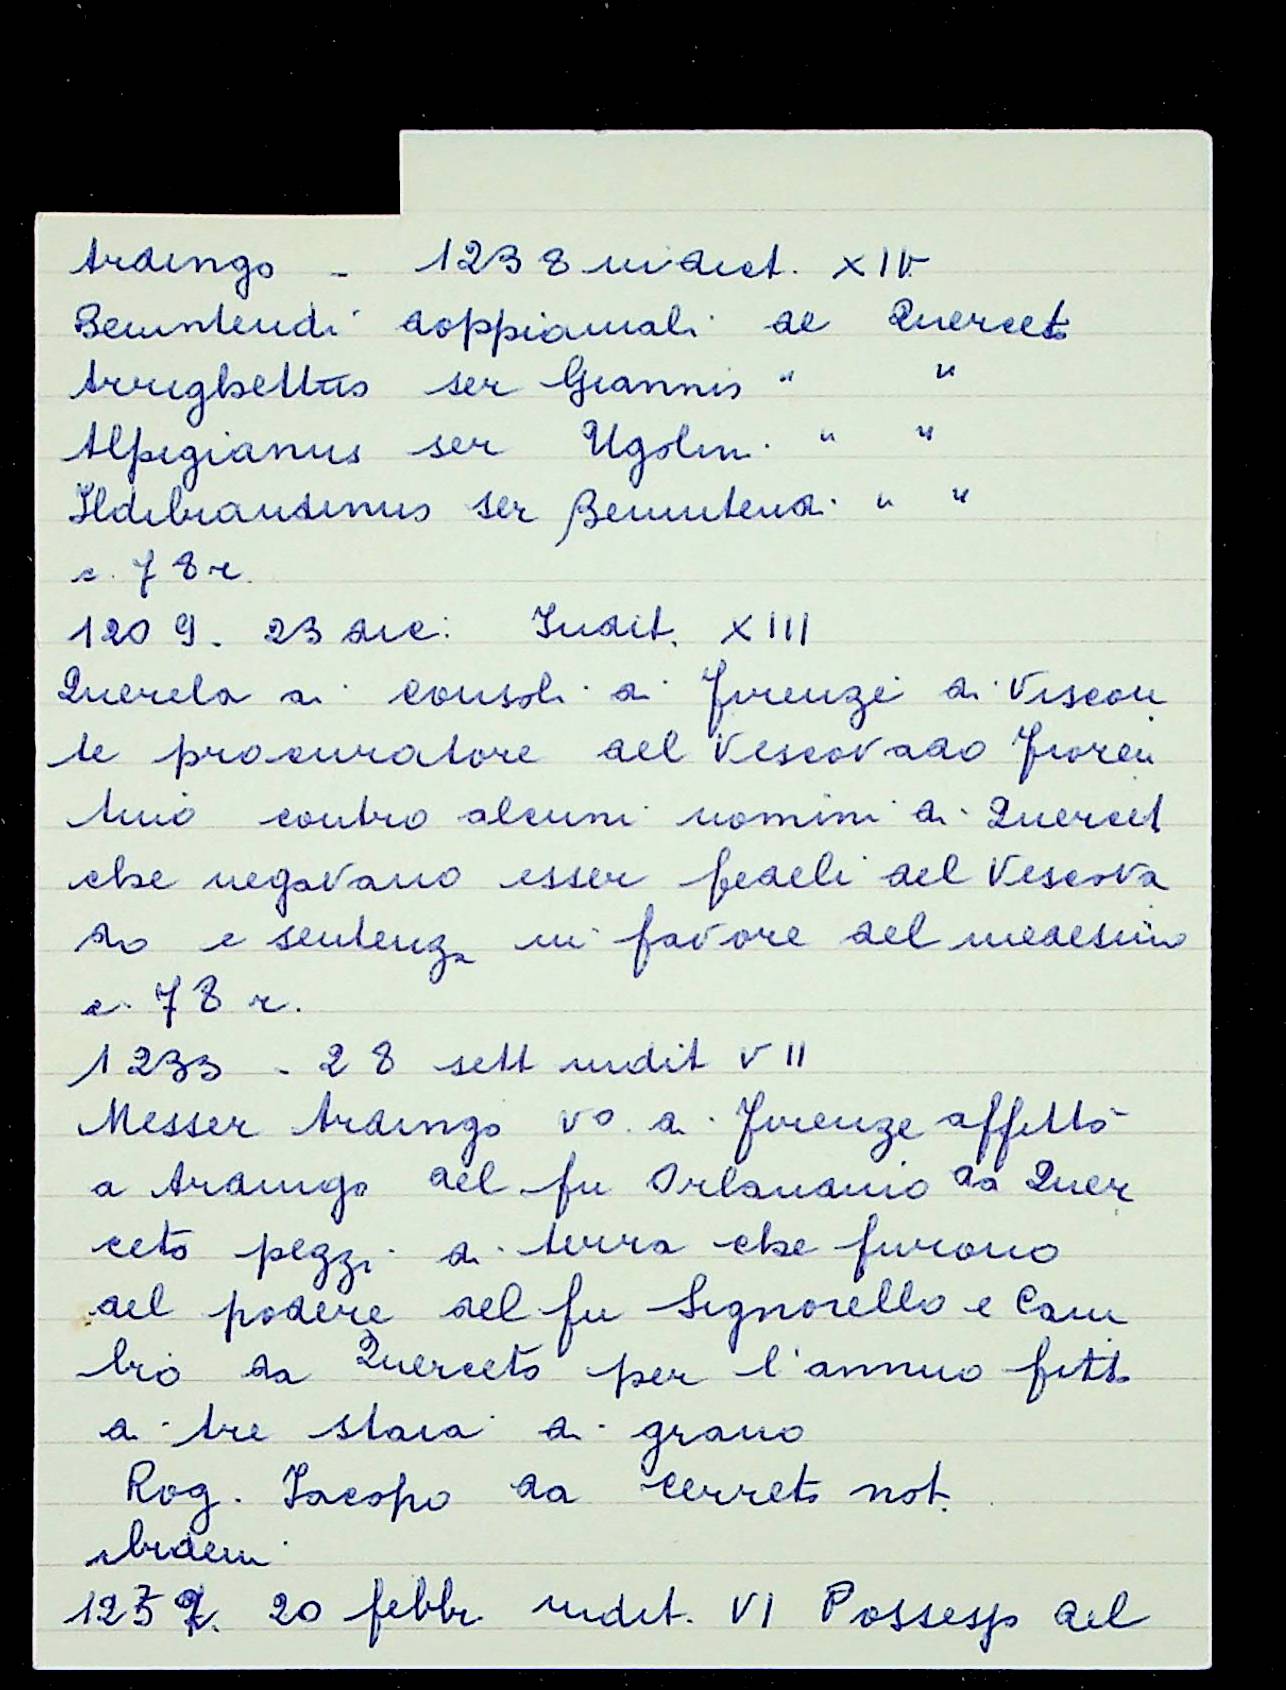 Ardingo - 1238 indict. XIV
Benintendi doppiamali de Querceto
Arrighettus ser Giannis " "
Alpigianus ser Ugolini " "
Ildibrandinus ser Benintendi " "
c. 78 r.
1209. 23 dic: Indit. XIII
Querela ai consoli di Firenze di Viscon
te procuratore del Vescovado Fioren
tino contro alcuni uomini di Querceto
che negavano esser fedeli del Vescova
do e sentenza in favore del medesimo
c. 78 r.
1233 - 28 sett indit VII
Messer Ardingo vo. di Firenze affittò
a Ardingo del fu Orlandino da Quer
ceto pezzi di terra che furono
del podere del fu Signorello e Cam
bio da Querceto per l'annuo fitto
di tre staia di grano
Rog. Iacopo da Cerreto not.
ibidem
20 febbr. indit. VI Possesso del